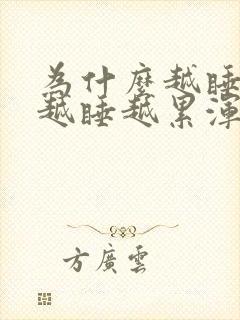 為什麼越睡
越睡越累渾
方廣雲